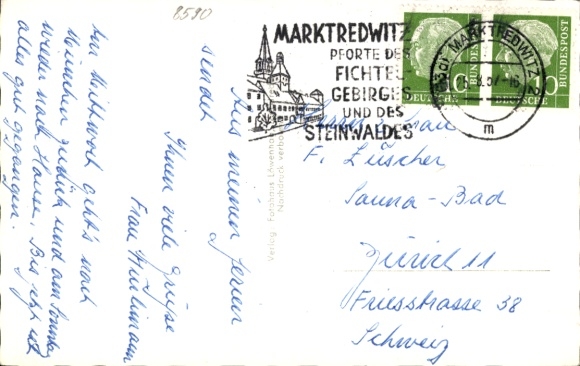 8590
MARKTREDWITZ
PFORTE DES
FICHTEL
GEBIRGES
UND DES
STEINWALDES
MARKTREDWITZ 2
8.57-16
m
DEUTSCHE
BUNDESPOST
10
DEUTSCHE
BUNDESPOST
10
Frau
F. Lüscher
Sauna-Bad
Zürich 11
Friesstrasse 38
Schweiz
Aus meinen Ferien
sendet
Ihnen viele Grüsse
Frau
Am Mittwoch geht's nach
München zurück und am
wieder nach Hause. Bis jetzt ist
alles gut gegangen.
Verlag
Nachdruck verboten